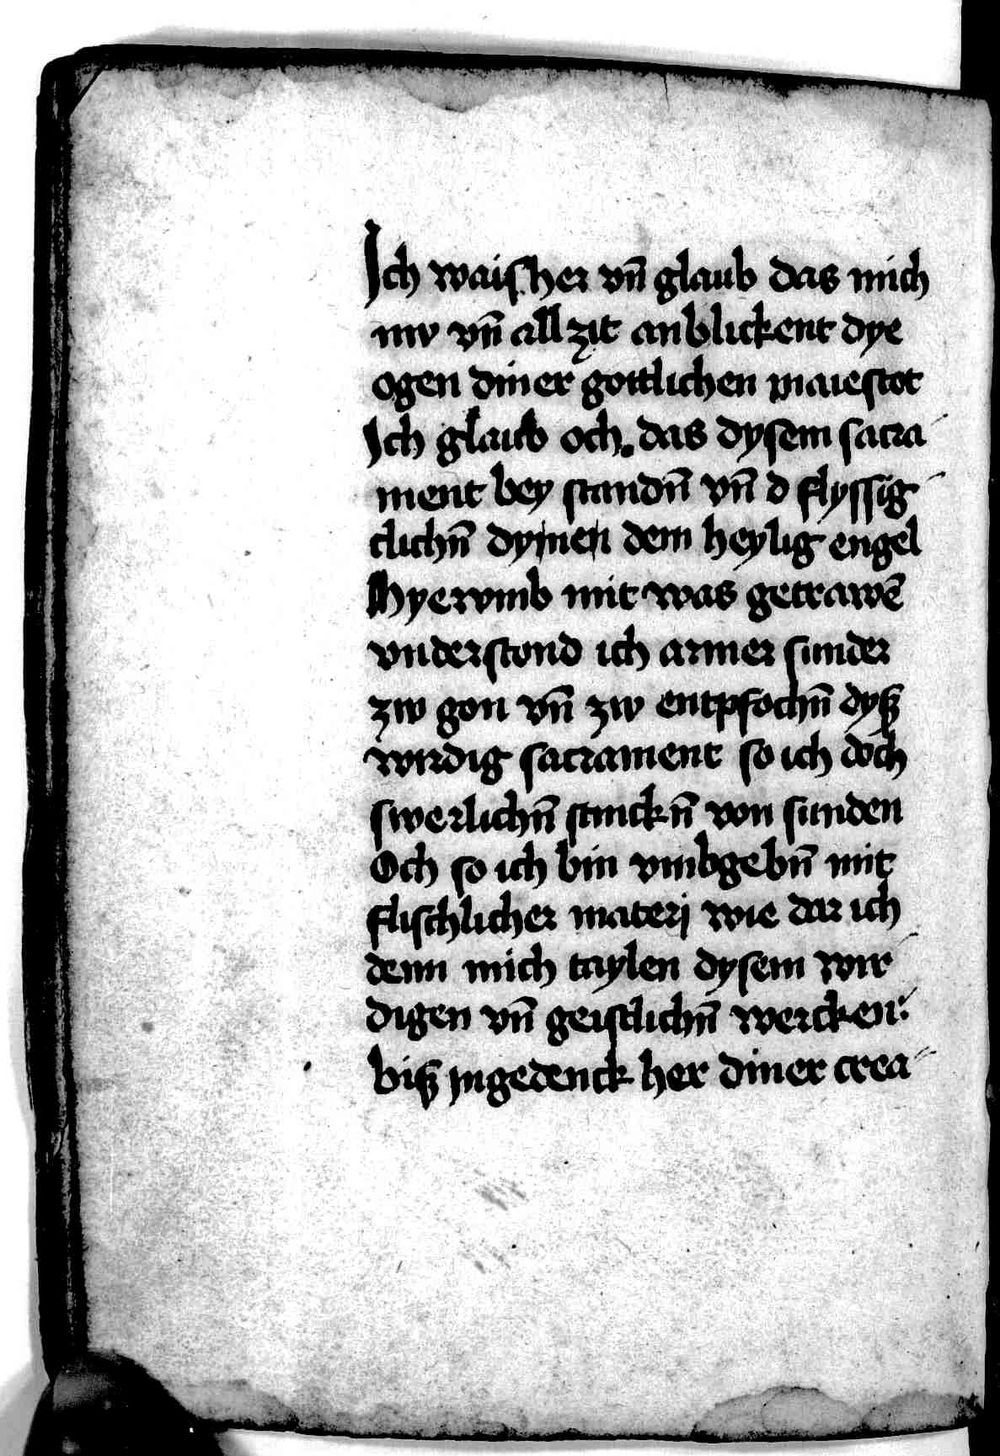 Ich waisher vn̄ glaub das mich
nw vn̄ all zit anblickent dye
ogen diner gottlichen maiestot
Ich glaub och das dysem sacra
ment bey standn̄ vn̄ d flyssig
clichn̄ dymen dem heylig engel
Hyervmb mit was getrawē
vnderstond ich armer sunder
zw gon vn̄ zw entpfochn̄ dyß
wirdig sacrament so ich doch
swerlichn̄ stinckn̄ von sunden
Och so ich bin vmbgebn̄ mit
flischlicher materj wie dar ich
denn mich taylen dysem wir
digen vn̄ geistlichn̄ wercken:
biß yngedenck her diner crea